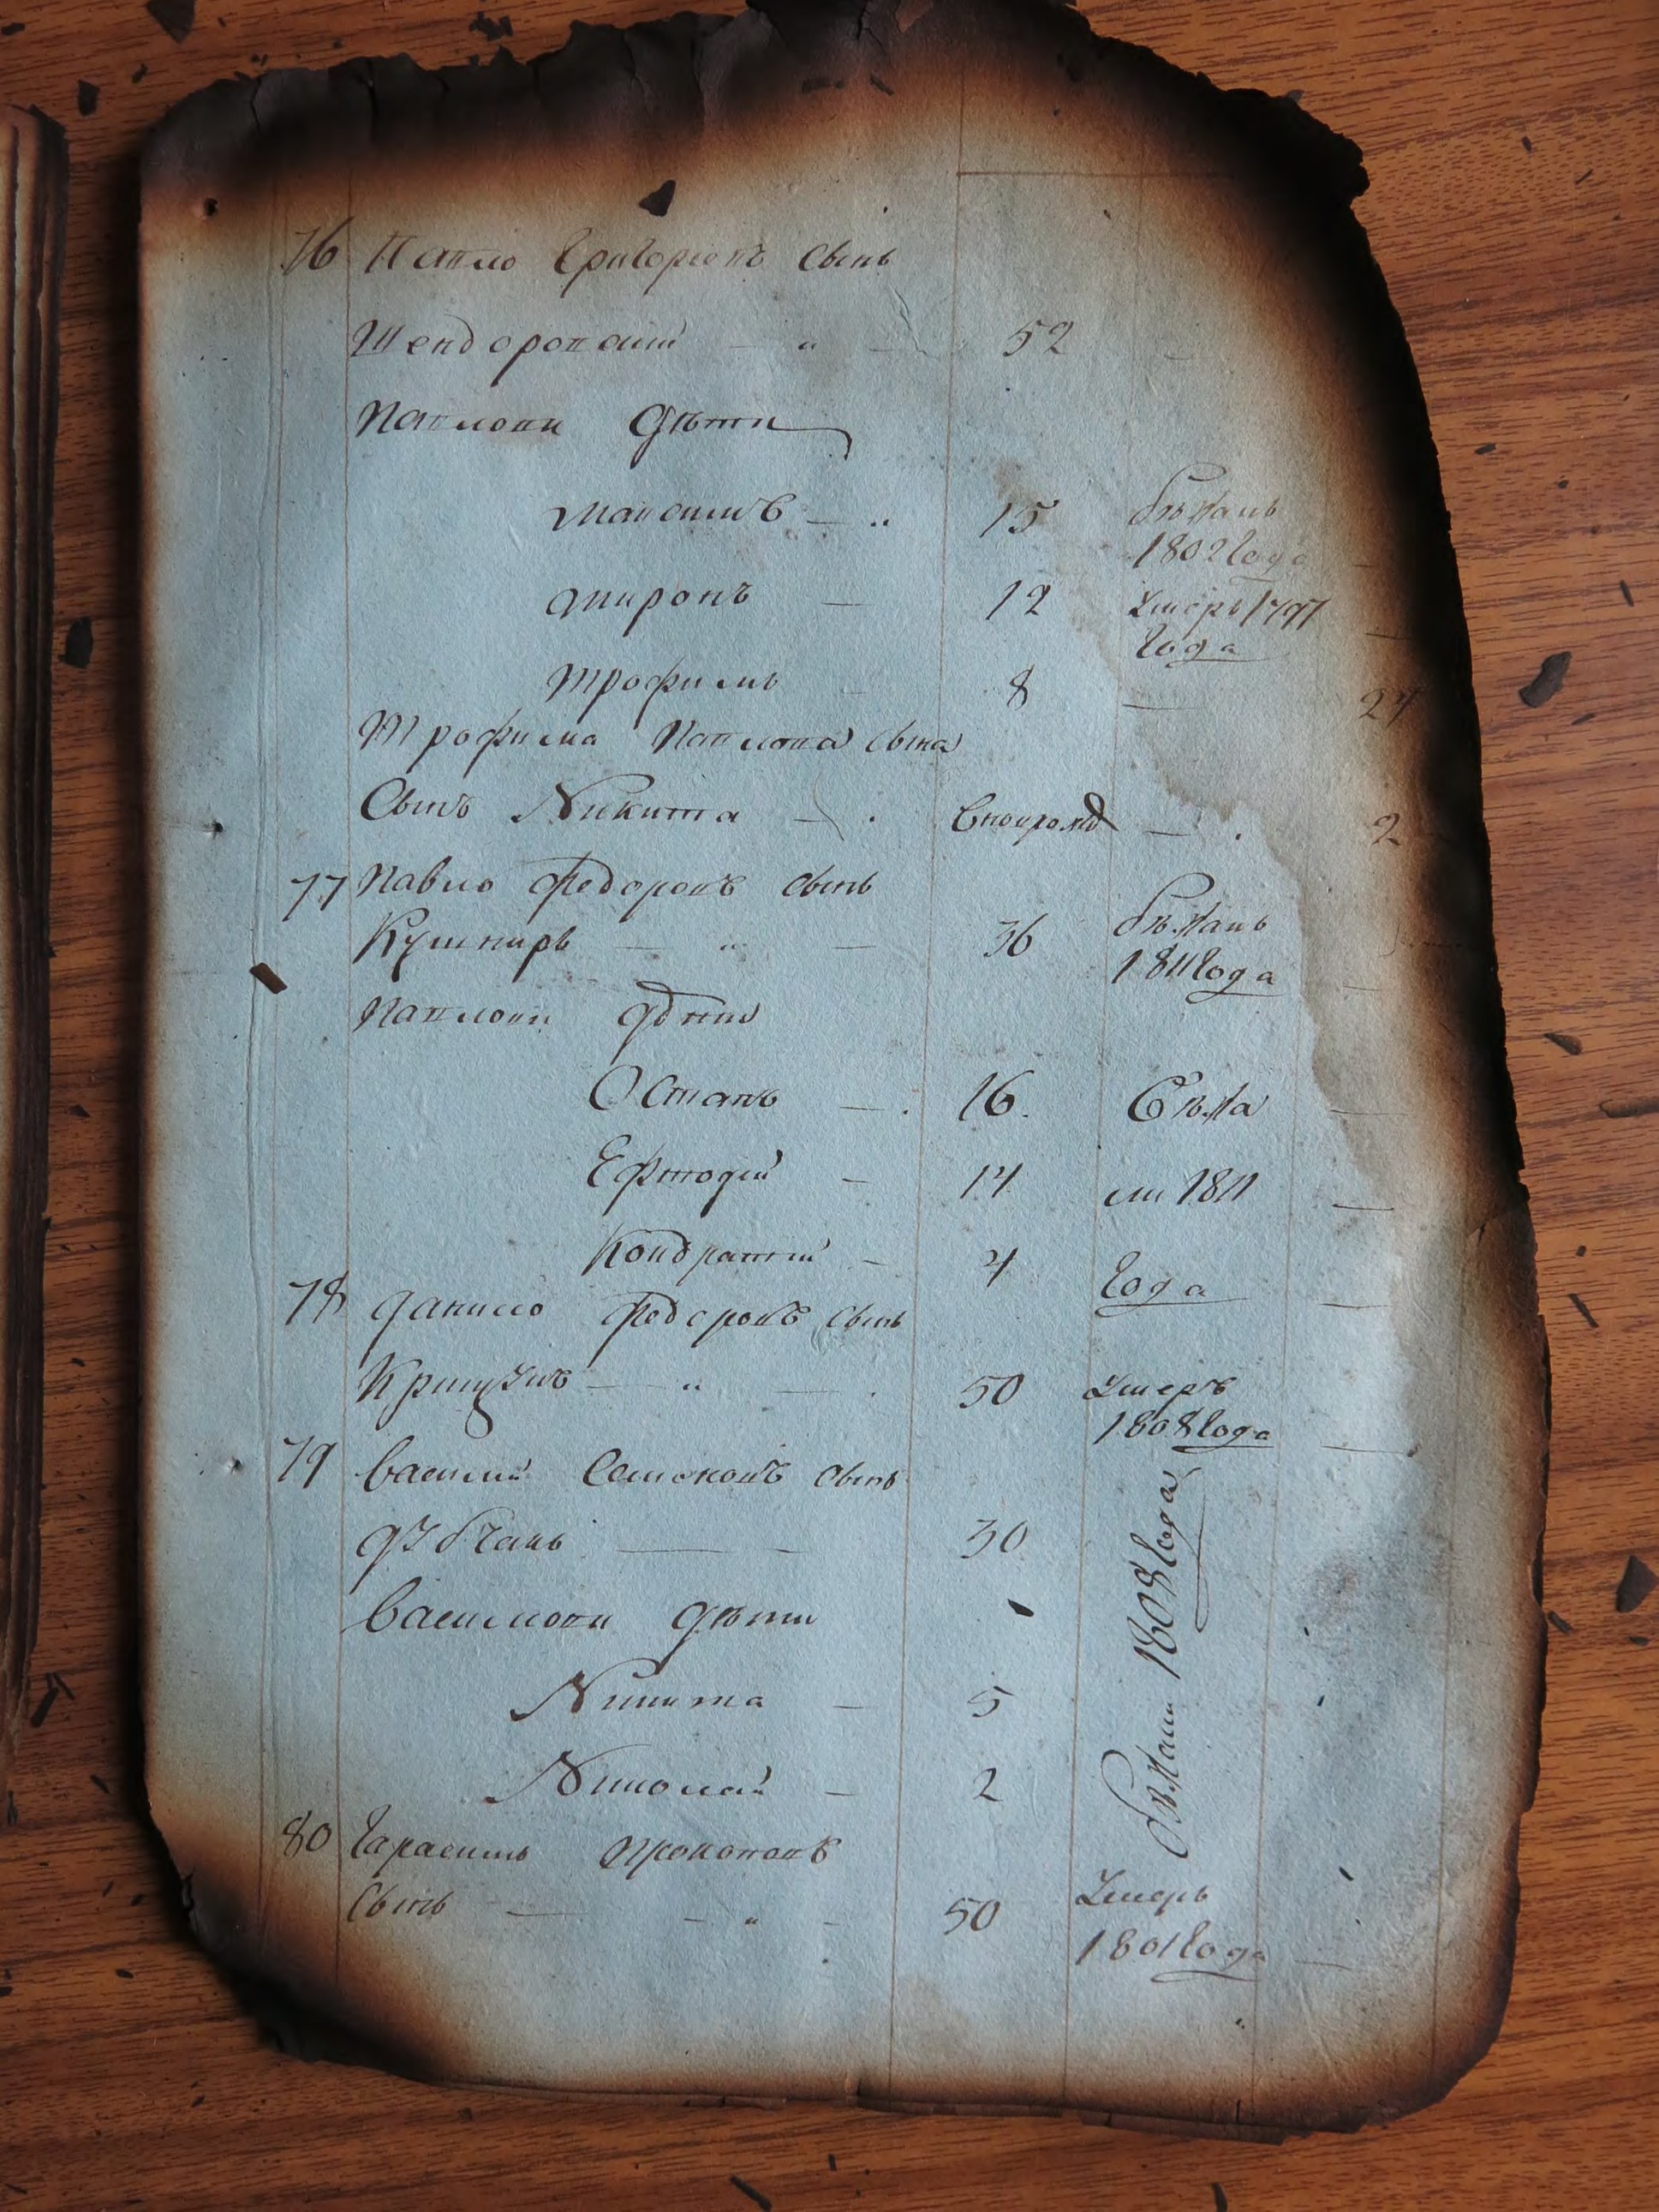 76 Павло Григорьевъ сынъ
Шендоровский — „ — 52
Павловы дѣти
Максимъ — „ 15 бѣжалъ
1802 года
Миронъ — 12 умеръ 1797
года
Трофимъ — 8 — 24
Трофима Павлова сына
Сынъ Никита — . вновирожд — . 2
77 Павло Федоровъ сынъ
Кушниръ — „ — 36 бѣжалъ
1811 года
Павловы дѣти
Остапъ — . 16. Бѣжа
Ефтодій — 14 ли 1811
Кондратій — 4 года
78 Данило Федоровъ сынъ
— „ — . 50 умеръ
1808 года
79 Василий Семеновъ сынъ
— — 30
Василовы дѣти
Никита — 5
Николай — 2
бѣжали 1808 года
80 Гарасимъ Прокоповъ
Сынъ — — „ — 50 умеръ
1801 года